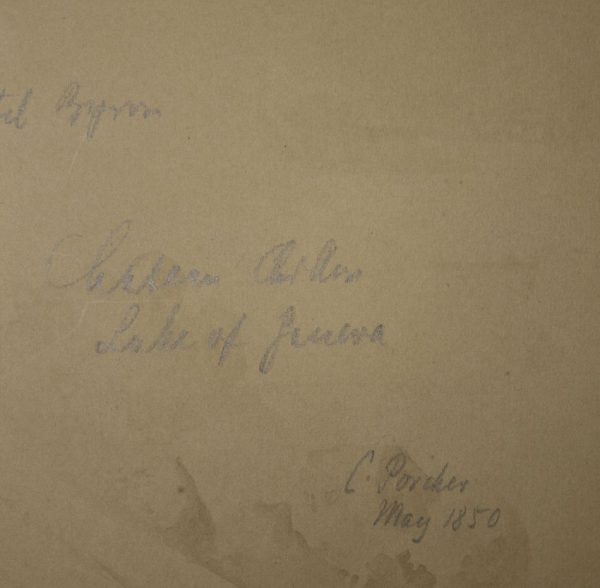 tel Byron
Chateau Chillon
Lake of Geneva
C. Porcher
May 1850